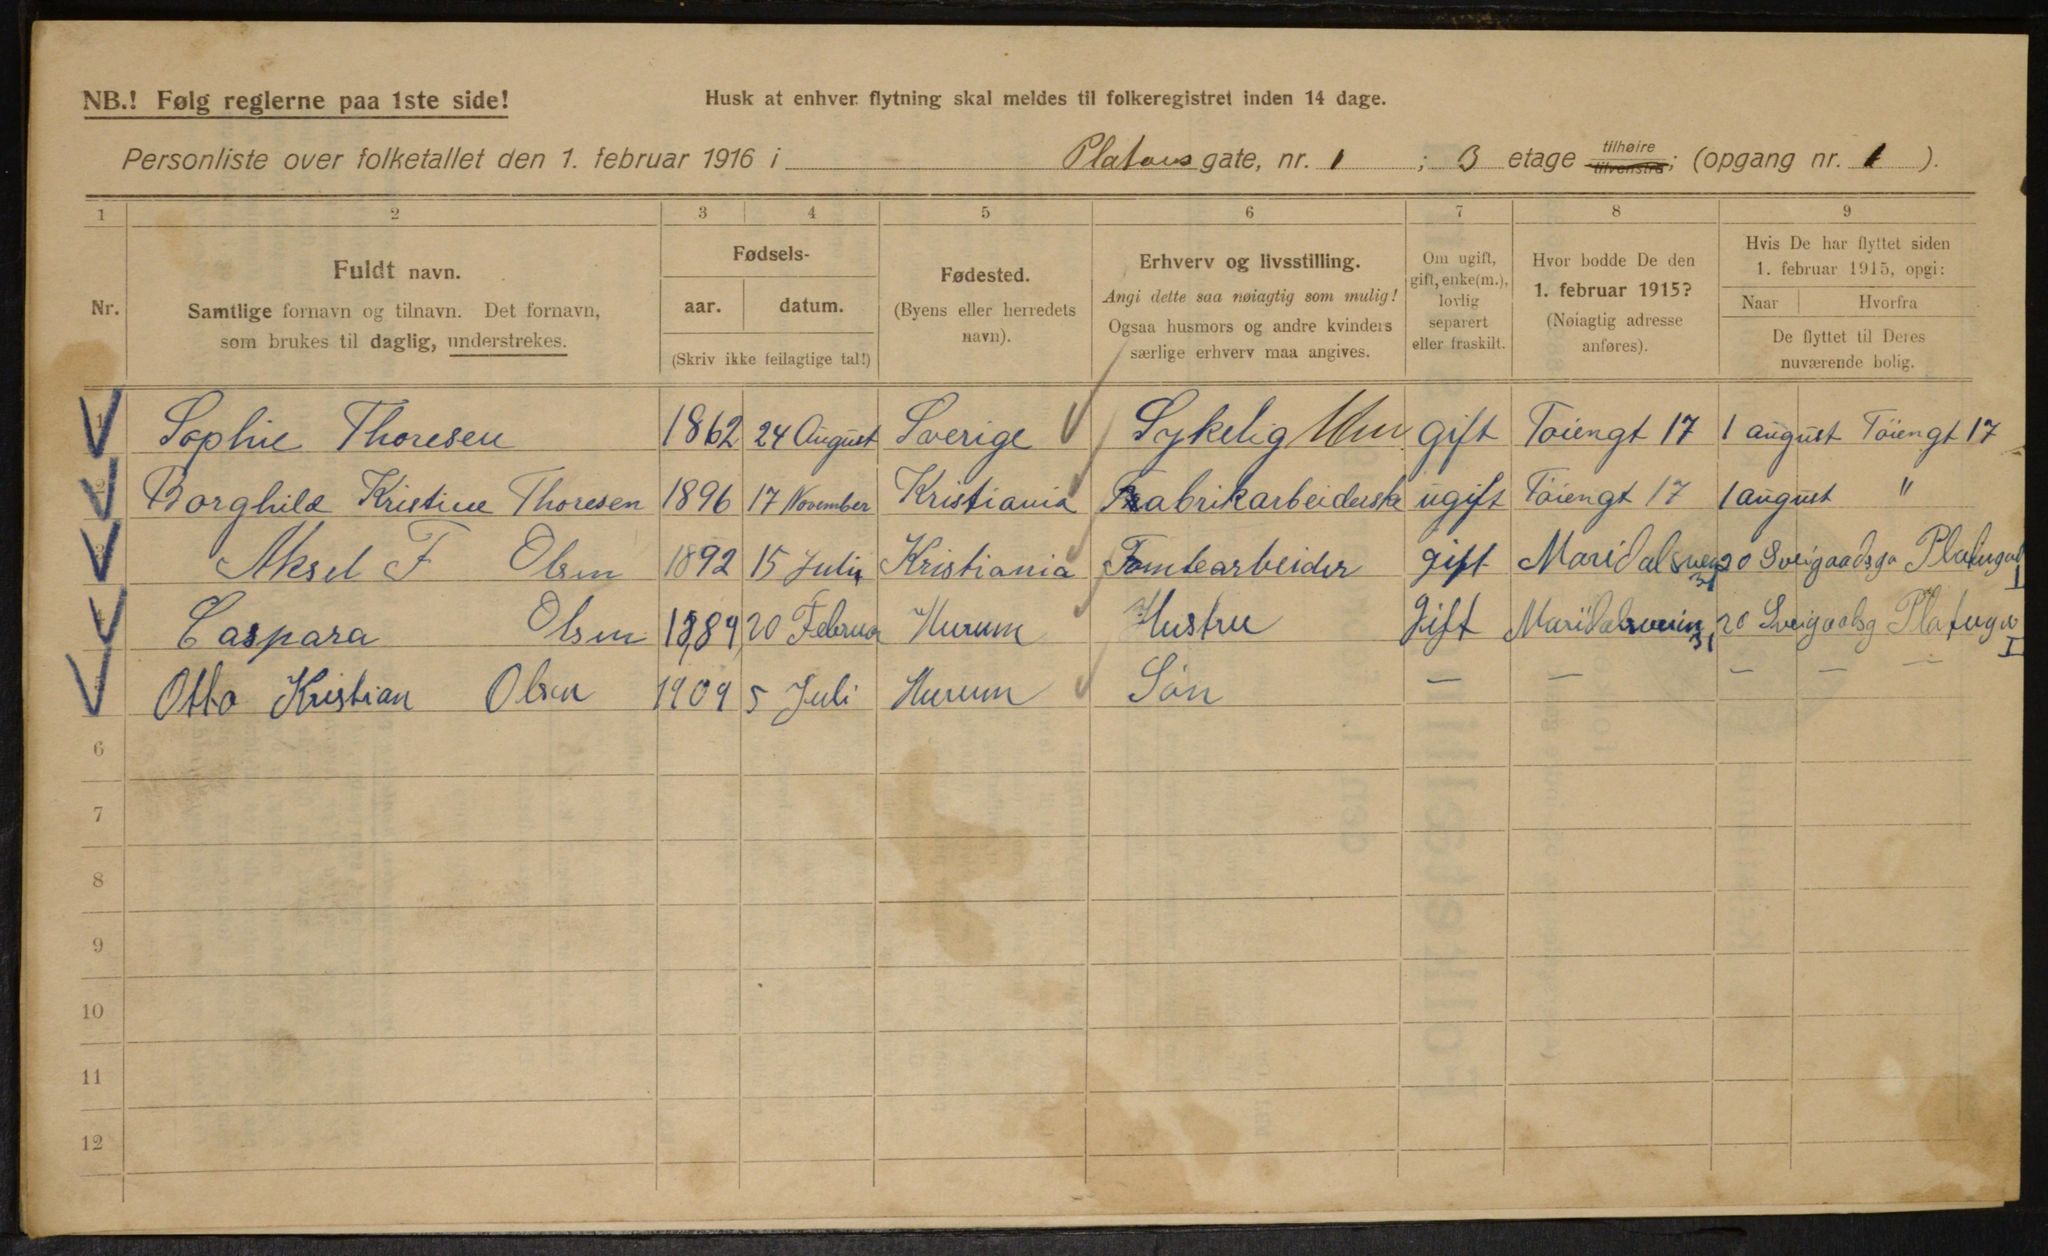 NB.! Følg reglerne paa 1ste side!
Husk at enhver flytning skal meldes til folkeregistret inden 14 dage.
Personliste over folketallet den 1. februar 1916 i Platous gate, nr. 1 ; 3 etage tilhøire tilvenstre; (opgang nr. 1 ).
1 2 3 4 5 6 7 8 9
Nr.
Fuldt navn.
Samtlige fornavn og tilnavn. Det fornavn,
som brukes til daglig, understrekes.
Fødsels-
aar. datum.
(Skriv ikke feilagtige tal!)
Fødested.
(Byens eller herredets
navn).
Erhverv og livsstilling.
Angi dette saa nøiagtig som mulig!
Ogsaa husmors og andre kvinders
særlige erhverv maa angives.
Om ugift,
gift, enke(m.),
lovlig
separert
eller fraskilt.
Hvor bodde De den
1. februar 1915?
(Nøiagtig adresse
anføres).
Hvis De har flyttet siden
1. februar 1915, opgi:
Naar Hvorfra
De flyttet til Deres
nuværende bolig.
1 Sophie Thoresen 1862 24 August Sverige Sykelig gift Töiengt 17 1 august Töiengt 17
2 Borghild Kristine Thoresen 1896 17 November Kristiania Fabrikarbeiderske ugift Töiengt 17 1 august "
3 Aksel F Olsen 1892 15 Juli Kristiania Tomtearbeider gift Maridalsvei 31 20
4 Caspara Olsen 1889 20 Februar Hurum Hustru Gift Maridalsveien 31 20
5 Otto Kristian Olsen 1909 5 Juli Hurum Sön — — — — —
6
7
8
9
10
11
12